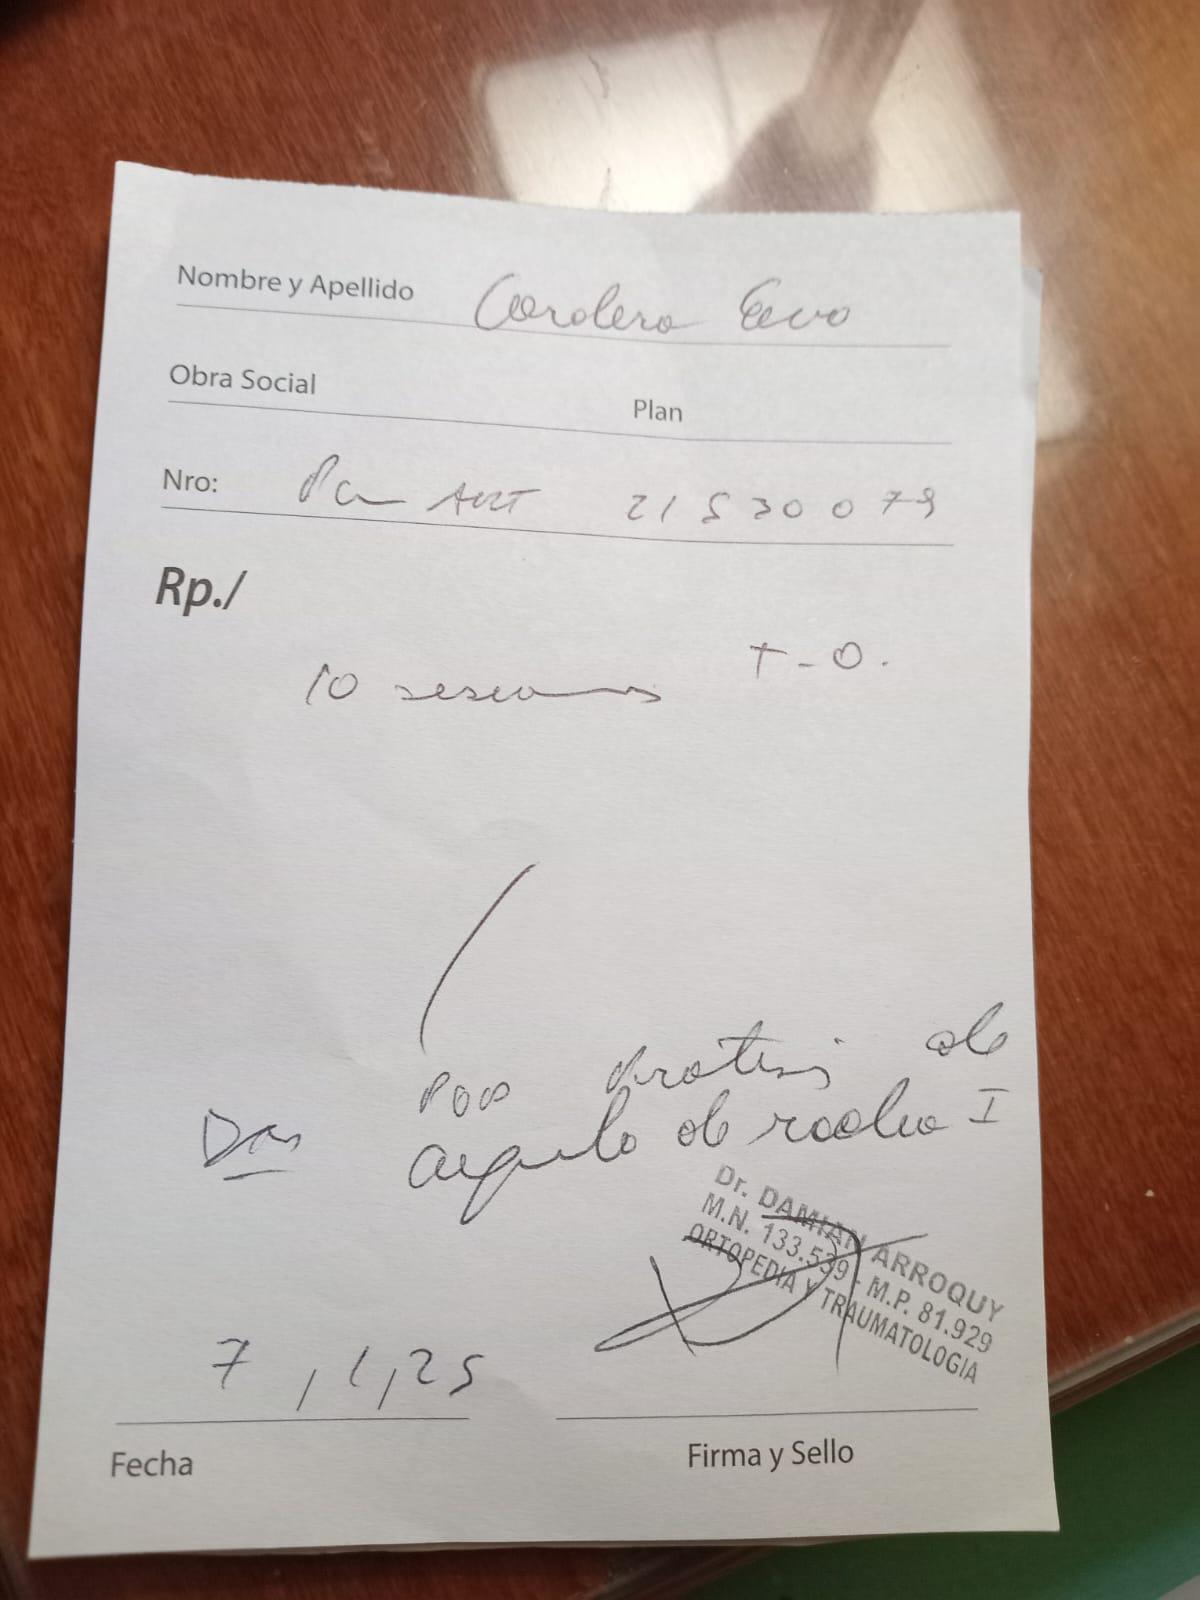 Nombre y Apellido
Obra Social
Plan
Nro: ART 21530079
Rp./
10 sesiones T-O.
Protesis de
Dx
de radio I
Dr. DAMIAN ARROQUY
M.N. 133.539 - M.P. 81.929
ORTOPEDIA Y TRAUMATOLOGIA
7/1/25
Fecha
Firma y Sello